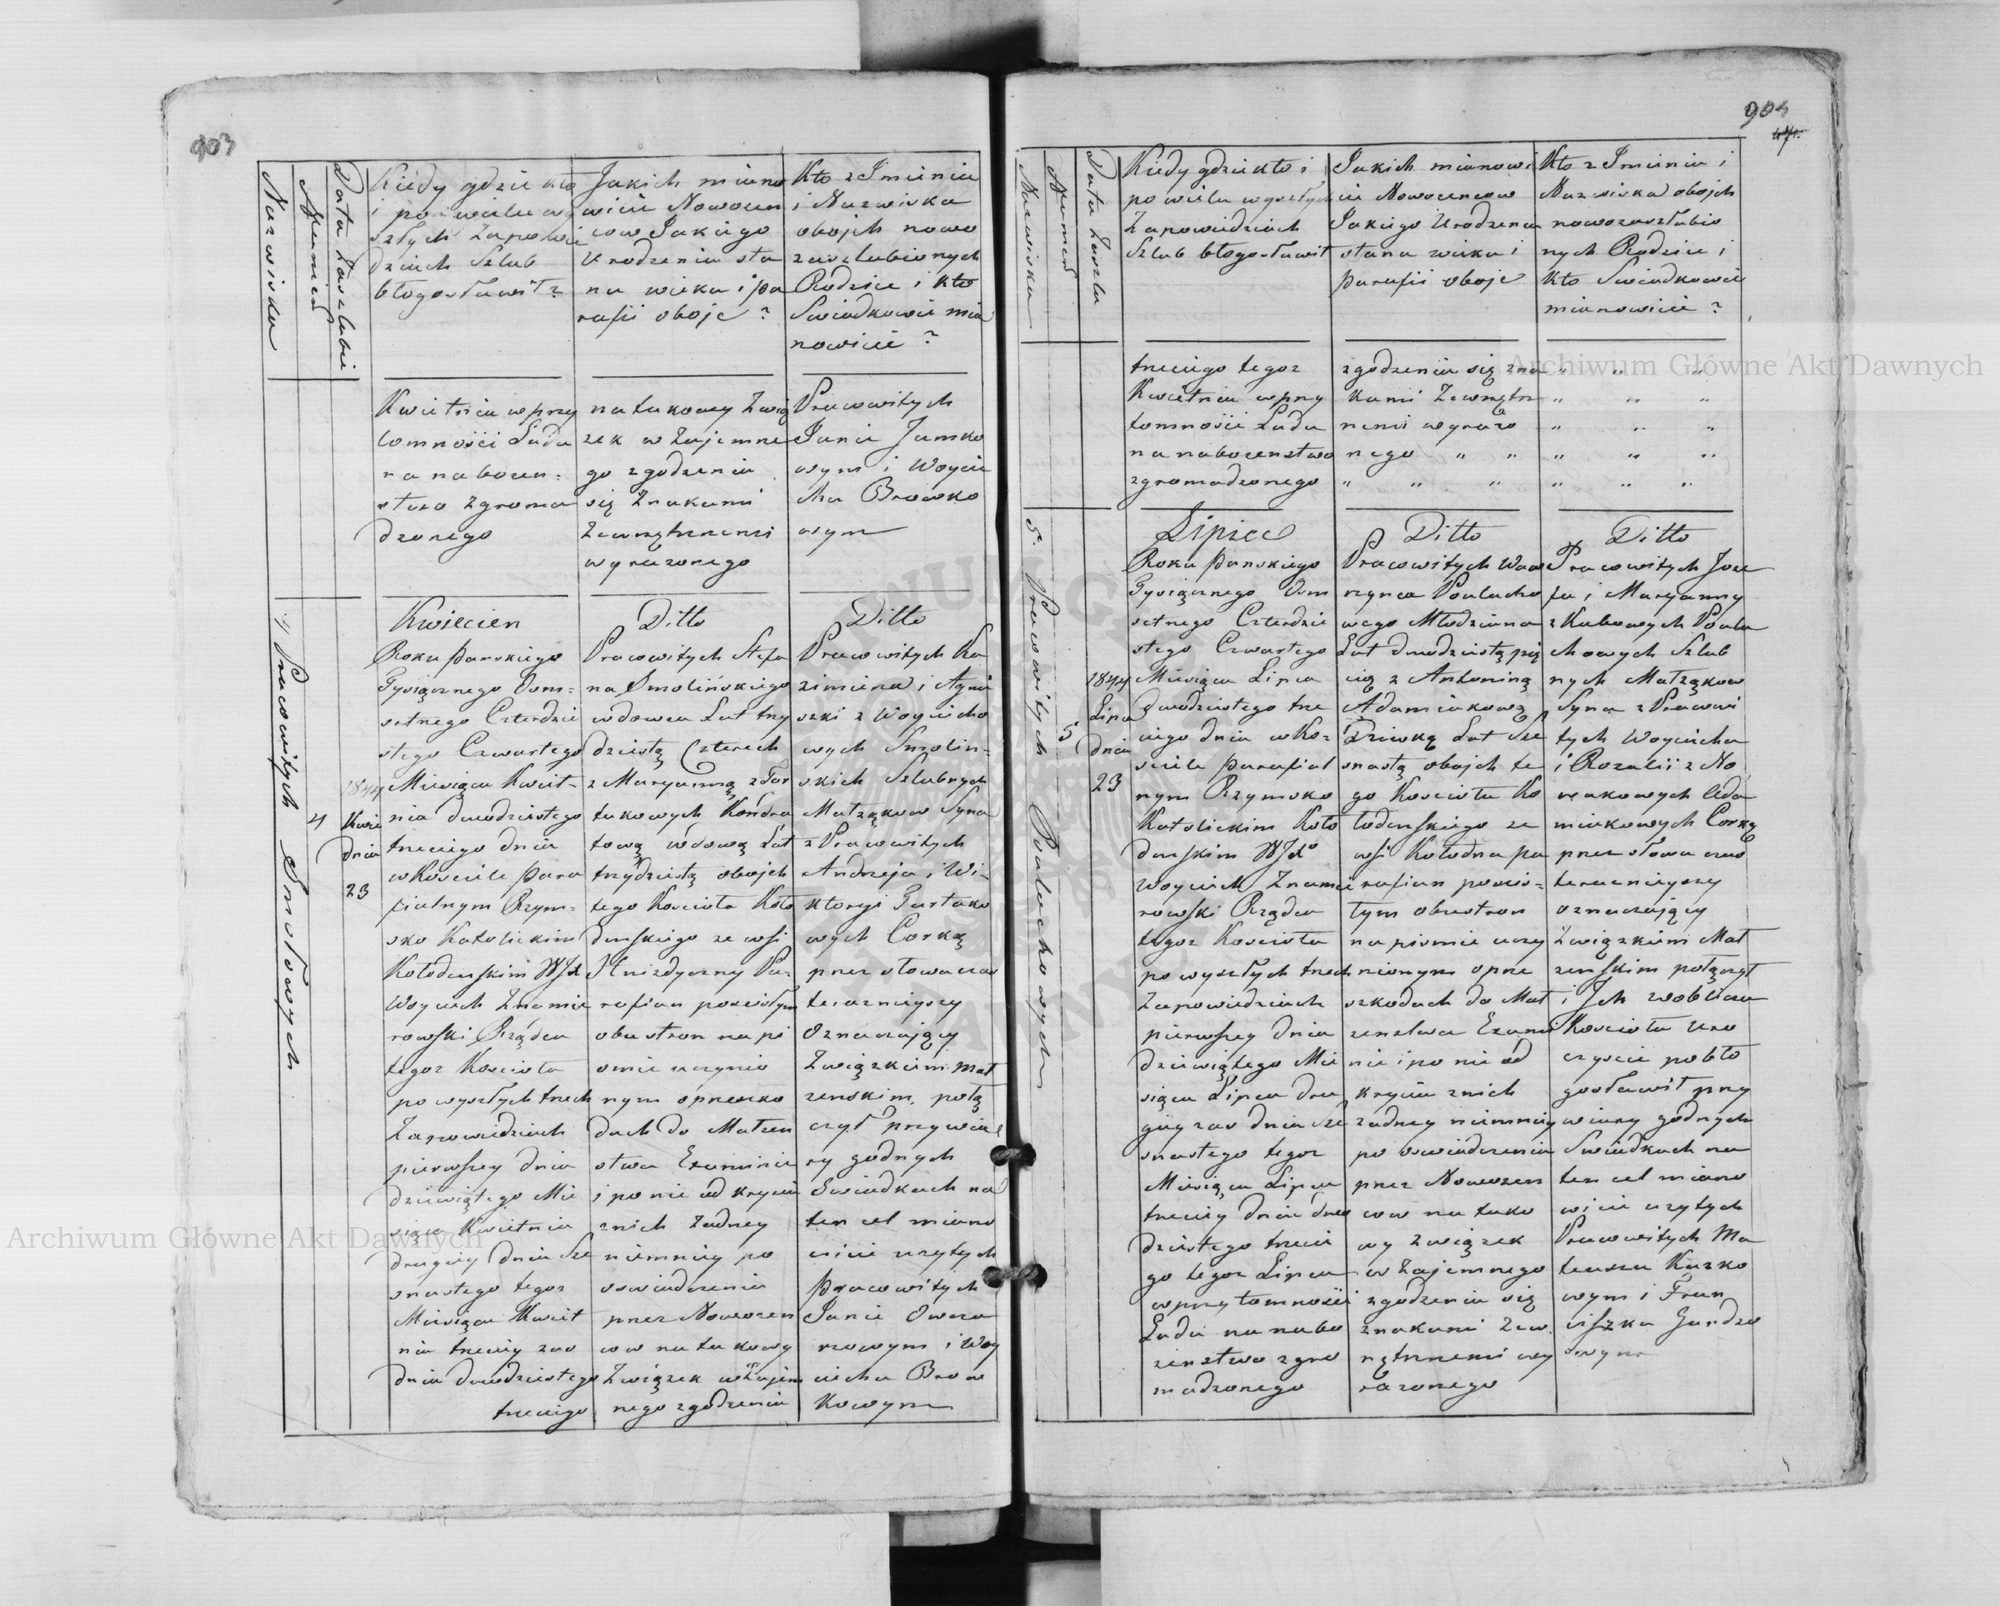 903
Nazwiska
Numer
Data zaszlubie
Kiedy gdzie kto
i po wielu wy
szłych zapowie
dziach Szlub
błogosławił?
Jakich miano
wicie Nowozen
cow Jakiego
Urodzenia sta
nu wieku i pa
rafii oboje?
Kto z Imienia
i Nazwiska
obojch nowo
zaszlubionych
Rodzice i kto
Swiadkowie mia
nowicie?
Kwietnia w przy
tomności Ludu
na nabozen=
stwo zgroma
dzonego
na takowy Zwią
zek w Zajemne
go zgodzenia
się Znakami
Zewnętrznemi
wyrazonego
Pracowitych
Jana Jamko
wym i Woycie
cha Browko
wym
4) Pracowitych Smolowych
4
1844
Kwie
dnia
23
Kwiecien
Roku Panskiego
Tysiącznego Osm=
setnego Czterdzie
stego Czwartego
Miesiąca Kwiet=
nia dwudziestego
trzeciego dnia
w Kosciele Para
fialnym Rzym=
sko Katolickim
Kołodenskim WJX
Woyciech Znamie
rowski Rządca
tegoz Koscioła
po wyszłych trzech
Zapowiedziach
pierwszey dnia
dziewiątego Mie
siąca Kwietnia
drugiey dnia Sze
snastego tegoz
Miesiąca Kwiet
nia trzeciey zas
dnia dwudziestego
trzeciego
Ditto
Pracowitych Stefa
na Smolińskiego
wdowca Lat trzy
dziestą Czterech
z Maryanną z Gar
tukowych Kondra
tową wdową Lat
trzydziestą obojch
tego Koscioła Koło
denskiego ze wsi
Hnizdyczny Pa=
rafian poscisłym
obustron na pi
smie uczynio
nym o przeszko
dach do Małzen
stwa Examinie
i po nie od kryciu
znich zadney
niemniey po
oswiadczeniu
przez Nowozen
cow na takowy
Związek w Zajem
nego zgodzenia
Ditto
Pracowitych Ka
zimierza i Agnie
szki z Woyciecho
wych Smolin=
skich Szlubnych
Małząkow Syna
z Pracowitych
Andrzeja i Wi=
ktoryi Gartuko
wych Corką
przez słowa czas
teraznieyszy
Oznaczający
Związkiem Mał
zenskim połą
czył przy wia
ry godnych
Swiadkach na
ten cel miano
wicie uzytych
Pracowitych
Janie Owcza
rzowym i Woy
ciecha Brow
kowym
904
47.
Nazwiska
Numer
Data Zaszlu
Kiedy gdzie kto i
po wielu wyszłych
Zapowiedziach
Szlub błogosławił
Jakich mianowi
cie Nowozencow
Jakiego Urodzenia
stanu wieku i
parafii oboje
Kto z Imienia i
Nazwiska obojch
nowozaszlubio
nych Rodzice i
kto Swiadkowie
mianowicie?
trzeciego tegoz
Kwietnia w przy
tomności Ludu
na nabozenstwo
zgromadzonego
zgodzenia się zna
kami Zewnętrz
nemi wyrazo
nego " "
" " "
" " "
" " "
" " "
" " "
" " "
5. Pracowitych Paluchowych
5
1844
Lipca
dnia
23
Lipiec
Roku Panskiego
Tysiącznego Osm
setnego Czterdzie
stego Czwartego
Miesiąca Lipca
dwudziestego trze
ciego dnia w Ko=
sciele parafial
nym Rzymsko
Katolickim Koło
denskim WJX
Woyciech Znamie
rowski Rządca
tegoz Koscioła
po wyszłych trzech
Zapowiedziach
pierwszey dnia
dziewiątego Mie
siąca Lipca dru
giey zas dnia Sze
snastego tegoz
Miesiąca Lipca
trzeciey dnia dwu
dziestego trzecie
go tegoz Lipca
w przytomności
Ludu na nabo
zenstwo zgro
madzonego
Ditto
Pracowitych Waw
rzynca Palucho
wego Młodziana
Lat dwudziestą pię
cią z Antoniną
Adamiukową
Dziwką Lat Sze
snastą obojch te
go Koscioła Ko
łodenskiego ze
wsi Kołodna pa
rafian poscis=
łym obustron
na pismie uczy
nionym o prze
szkodach do Mał
zenstwa Exami
nie i po nie od
kryciu znich
zadney niemniey
po oswiadczeniu
przez Nowozen
cow na tako
wy Związek
w Zajemnego
zgodzenia się
znakami Zew
nętrznemi wy
razonego
Ditto
Pracowitych Joze
fa i Maryanny
z Kubowych Palu
chowych Szlub
nych Małząkow
Syna z Pracowi
tych Woyciecha
i Rozalii z No
wakowych Ada
miukowych Corką
przez słowa czas
teraznieyszy
oznaczający
Związkiem Mał
zenskim połączył
i Jch w obliczu
Koscioła uro
czyscie pobło
gosławił przy
wiary godnych
Swiadkach na
ten cel miano
wicie uzytych
Pracowitych Ma
teusza Kuzko
wym i Fran
ciszka Gardzo
wym